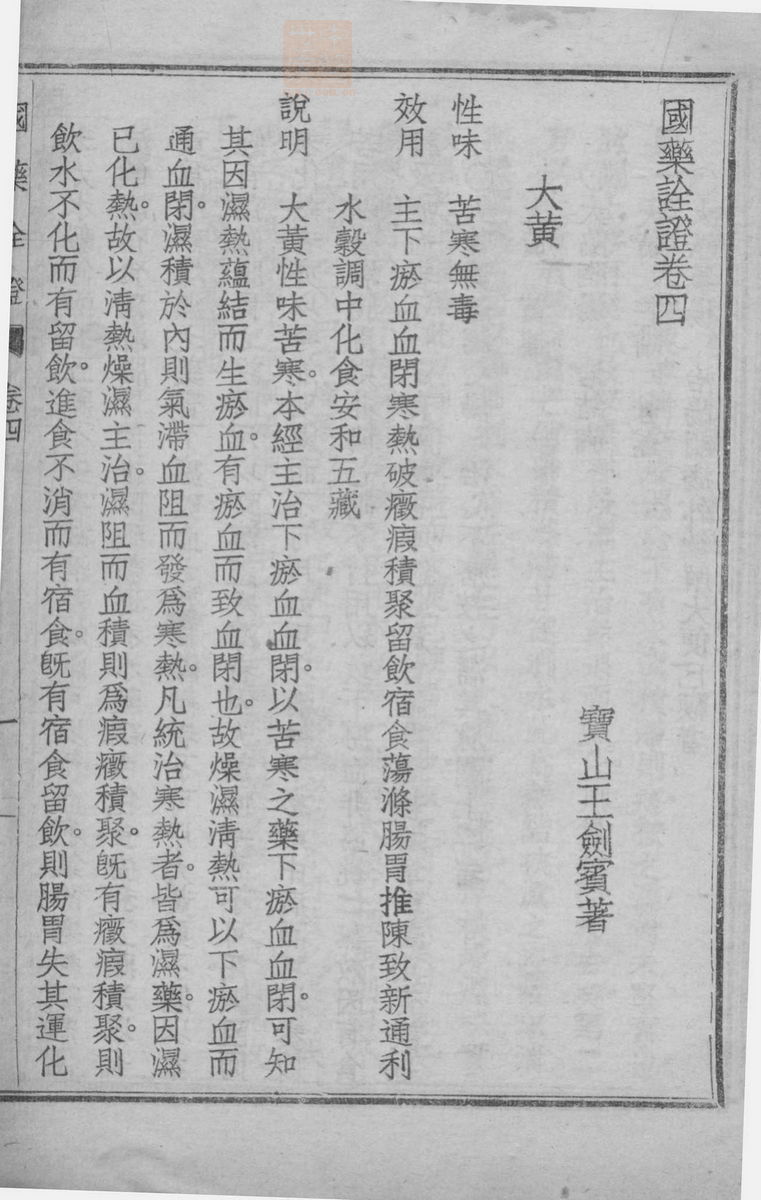 國藥詮證卷四
寶山王劍賓著
大黃
性味　苦寒無毒
效用　主下瘀血血閉寒熱破癥瘕積聚留飲宿食蕩滌腸胃推陳致新通利
水穀調中化食安和五藏
說明　大黃性味苦寒。本經主治下瘀血血閉。以苦寒之藥下瘀血血閉。可知
其因濕熱蘊結而生瘀血。有瘀血而致血閉也。故燥濕淸熱可以下瘀血而
通血閉。濕積於內則氣滯血阻而發爲寒熱。凡統治寒熱者。皆爲濕藥。因濕
已化熱。故以淸熱燥濕主治。濕阻而血積則爲瘕癥積聚。旣有癥瘕積聚。則
飲水不化而有留飲。進食不消而有宿食。旣有宿食留飲。則腸胃失其運化
國藥詮證　卷四　一